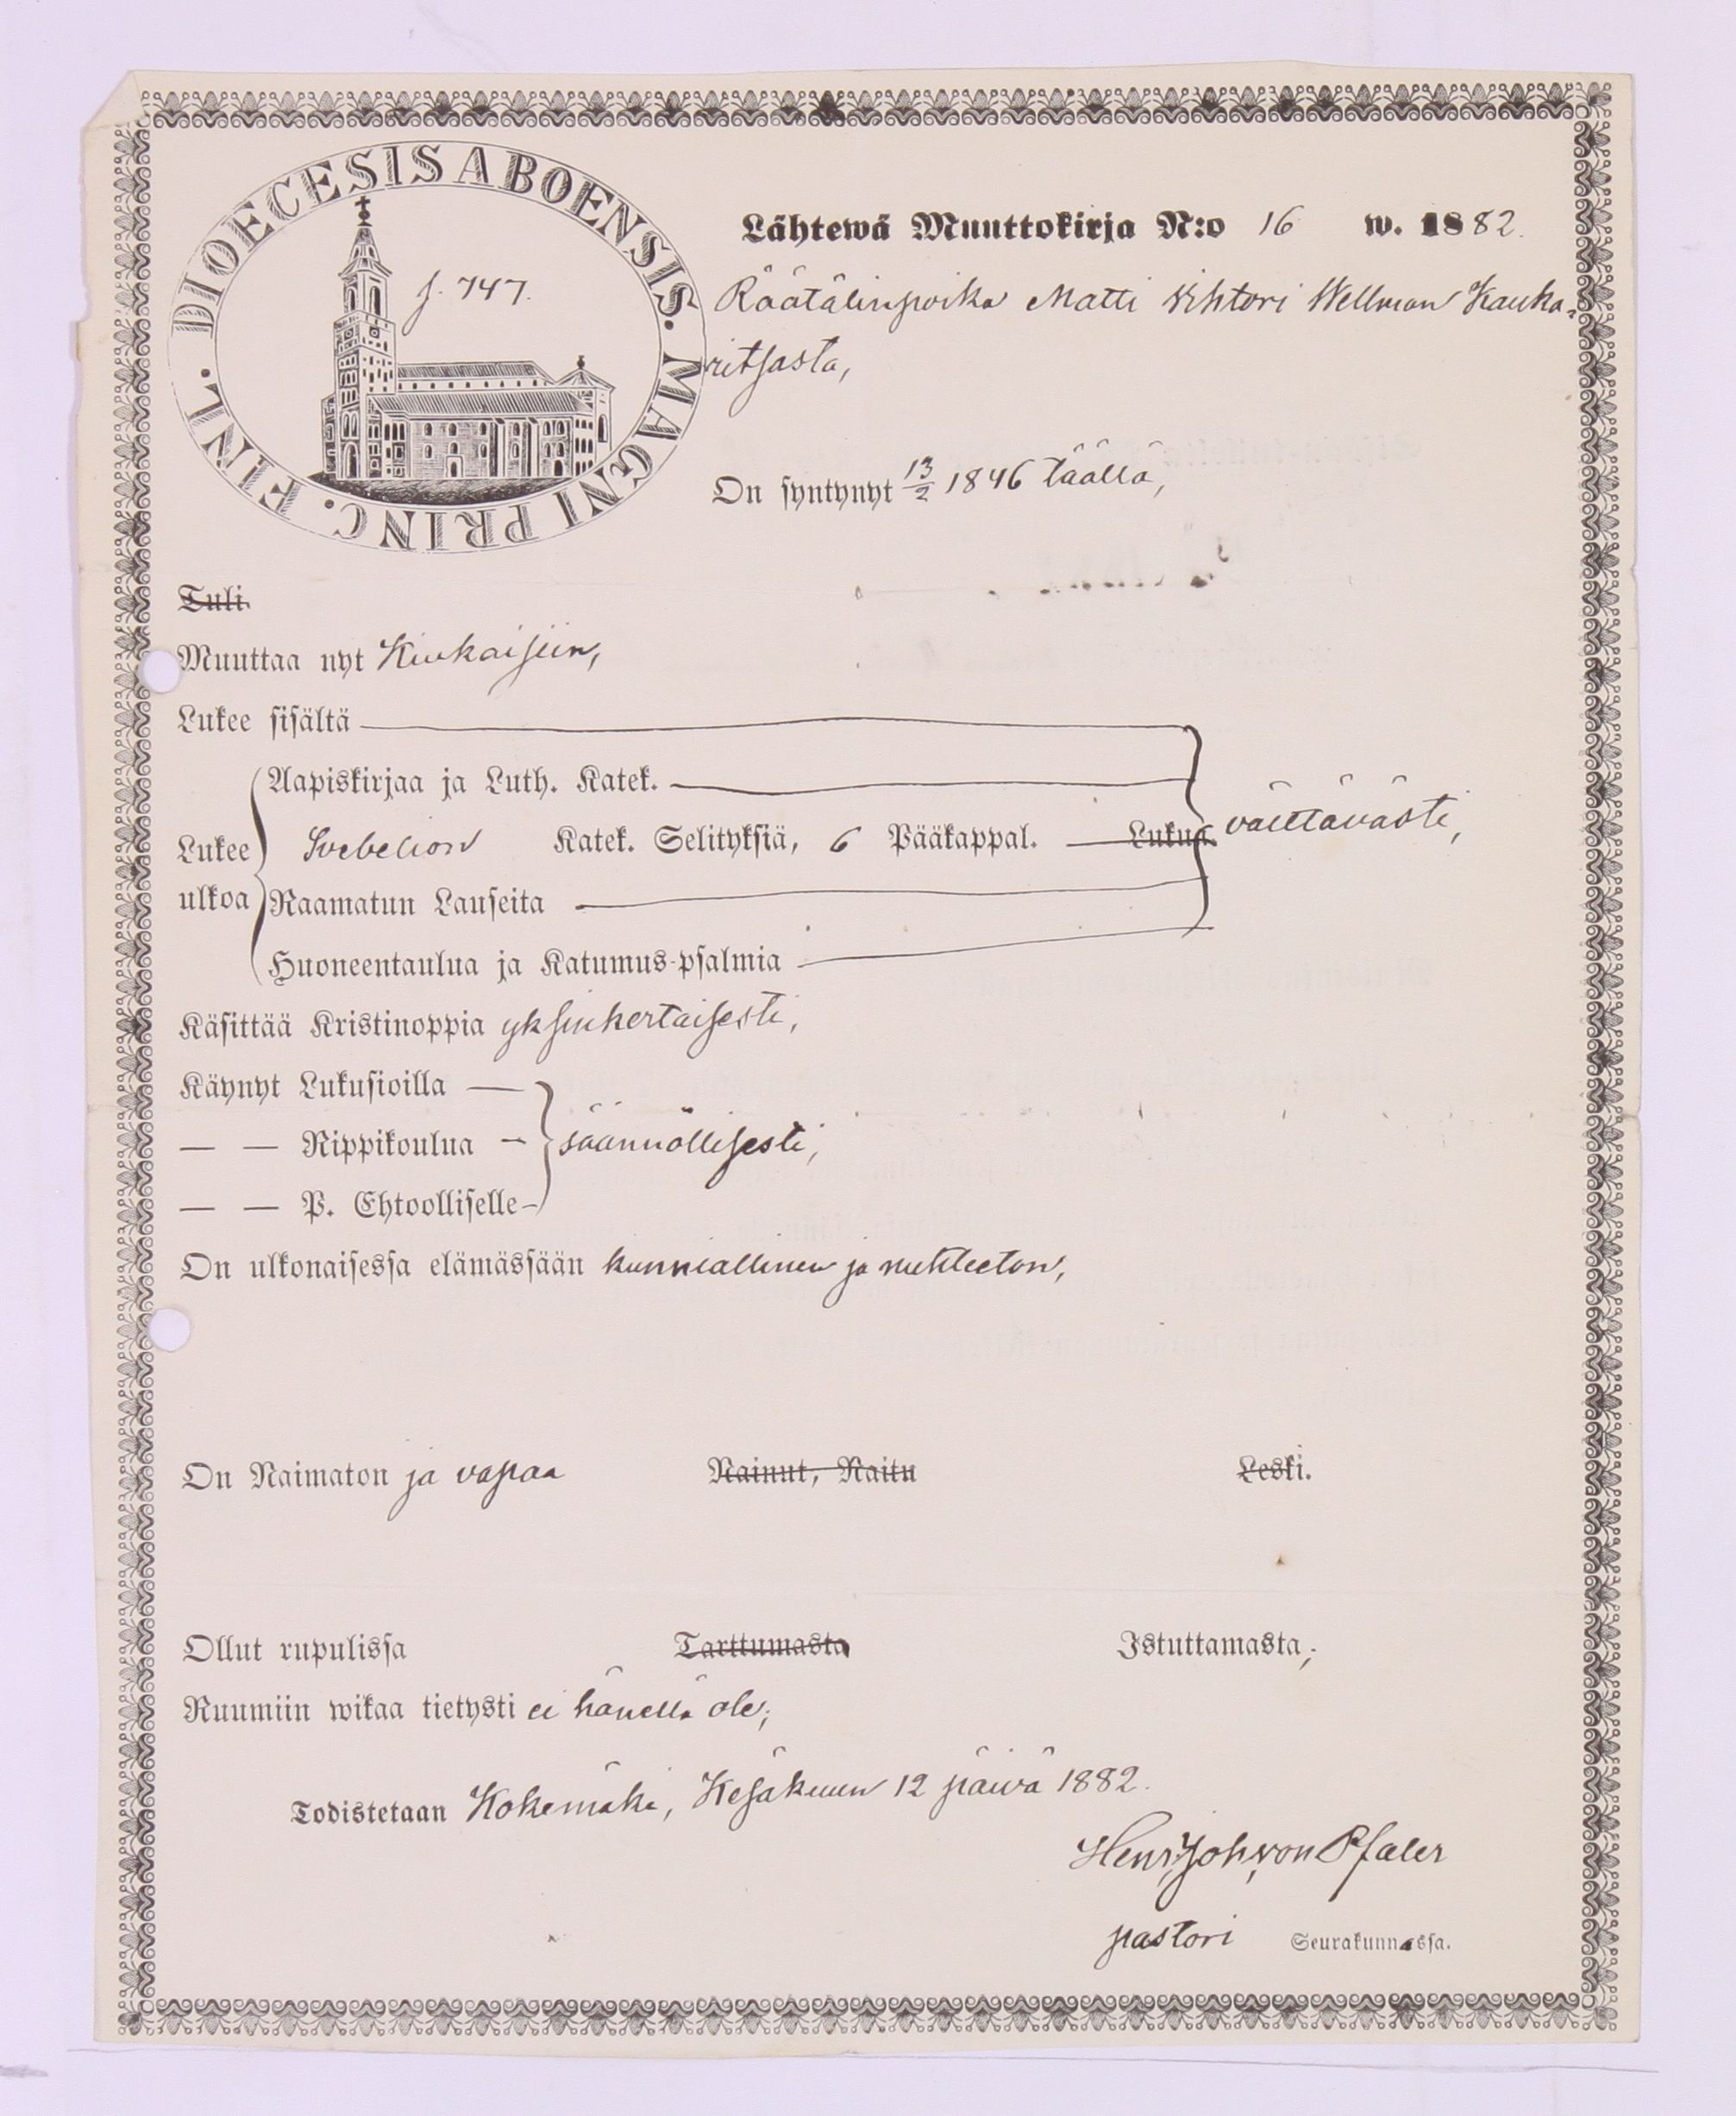 DIOECESIS ABOENSIS. MAGNI PRINC. FINL.
f. 747.
Lähtewä Muuttokirja N:o 16 w. 1882.
Räätälinpoika Matti Vihtori Wellman Kauka-
ritsasta,
On syntynyt 13/2 1846 täällä,
Tuli
Muuttaa nyt Kiukaisiin,
Lukee sisältä
Aapiskirjaa ja Luth. Katek.
Lukee Svebelion Katek. Selityksiä, 6 Pääkappal. Lukua. välttävästi,
ulkoa Raamatun Lauseita
Huoneentaulua ja Katumus-psalmia
Käsittää Kristinoppia yksinkertaisesti,
Käynyt Lukusioilla —
— — Rippikoulua — säännöllisesti,
— — P. Ehtoolliselle -
On ulkonaisessa elämässään kunniallinen ja nuhteeton,
On Naimaton ja vapaa Nainut, Naitu Leski.
Ollut rupulissa Tarttumasta Istuttamasta;
Ruumiin wikaa tietysti ei hänellä ole;
Todistetaan Kokemäki, Kesäkuun 12 päivä 1882.
Henr. Joh. von Pfaler
pastori Seurakunnassa.